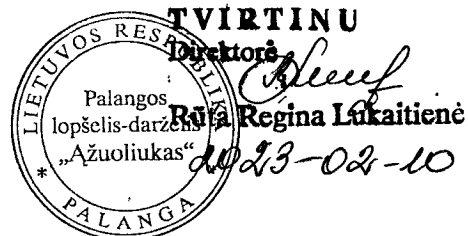 TVIRTINU
Direktorė
Rūta Regina Lukaitienė
2023-02-10
LIETUVOS RESPUBLIKA
Palangos
lopšelis-darželis
„Ąžuoliukas“
* PALANGA